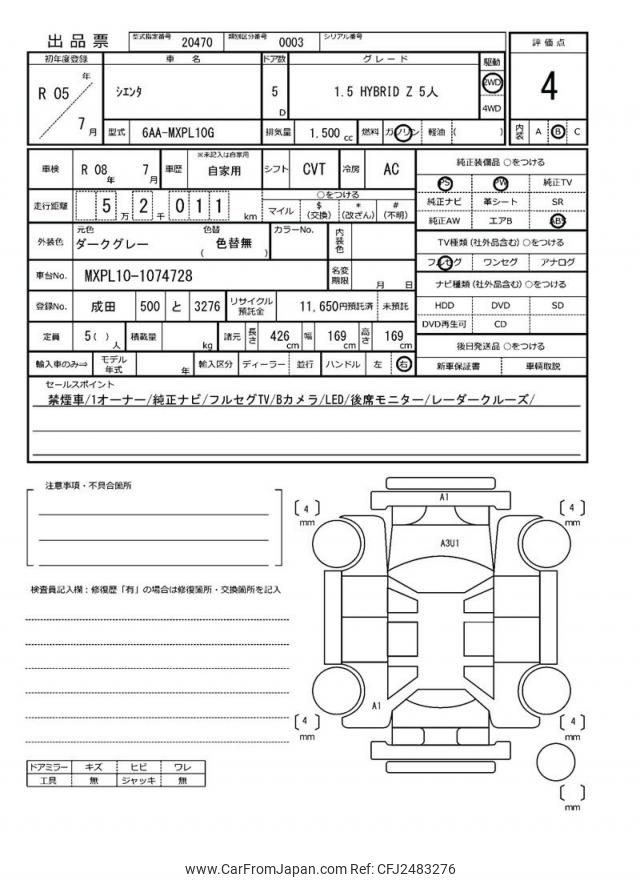 出品票 型式指定番号 20470 類別区分番号 0003 シリアル番号
評価点
4
内装 A B C
初年度登録 車名 ドア数 グレード 駆動
R 05 年 7 月 シエンタ 5 D 1.5 HYBRID Z 5人 2WD
4WD
型式 6AA-MXPL10G 排気量 1.500 cc 燃料 ガソリン 軽油 ( )
車検 R 08 年 7 月 車歴 ※未記入は自家用 自家用 シフト CVT 冷房 AC
走行距離 5 万 2 千 0 1 1 km ○をつける
マイル $(交換) *(改ざん) #(不明)
外装色 元色 ダークグレー 色替 ( 色替無 ) カラーNo. 内装色
車台No. MXPL10-1074728 名変期限 月 日
登録No. 成田 500 と 3276 リサイクル預託金 11,650円預託済 未預託
定員 5( ) 人 積載量 kg 諸元 長さ 426 cm 幅 169 cm 高さ 169 cm
輸入車のみ⇒ モデル年式 年 輸入区分 ディーラー 並行 ハンドル 左 右
純正装備品 ○をつける
PS PW 純正TV
純正ナビ 革シート SR
純正AW エアB ABS
TV種類(社外品含む) ○をつける
フルセグ ワンセグ アナログ
ナビ種類(社外品含む) ○をつける
HDD DVD SD
DVD再生可 CD
後日発送品 ○をつける
新車保証書 車輌取説
セールスポイント
禁煙車/1オーナー/純正ナビ/フルセグTV/Bカメラ/LED/後席モニター/レーダークルーズ/
注意事項・不具合箇所
検査員記入欄：修復歴「有」の場合は修復箇所・交換箇所を記入
ドアミラー キズ ヒビ ワレ
工具 無 ジャッキ 無
A1
[ 4 ] mm [ 4 ] mm
A3U1
A1
[ 4 ] mm [ 4 ] mm
[ ] mm
www.CarFromJapan.com Ref: CFJ2483276